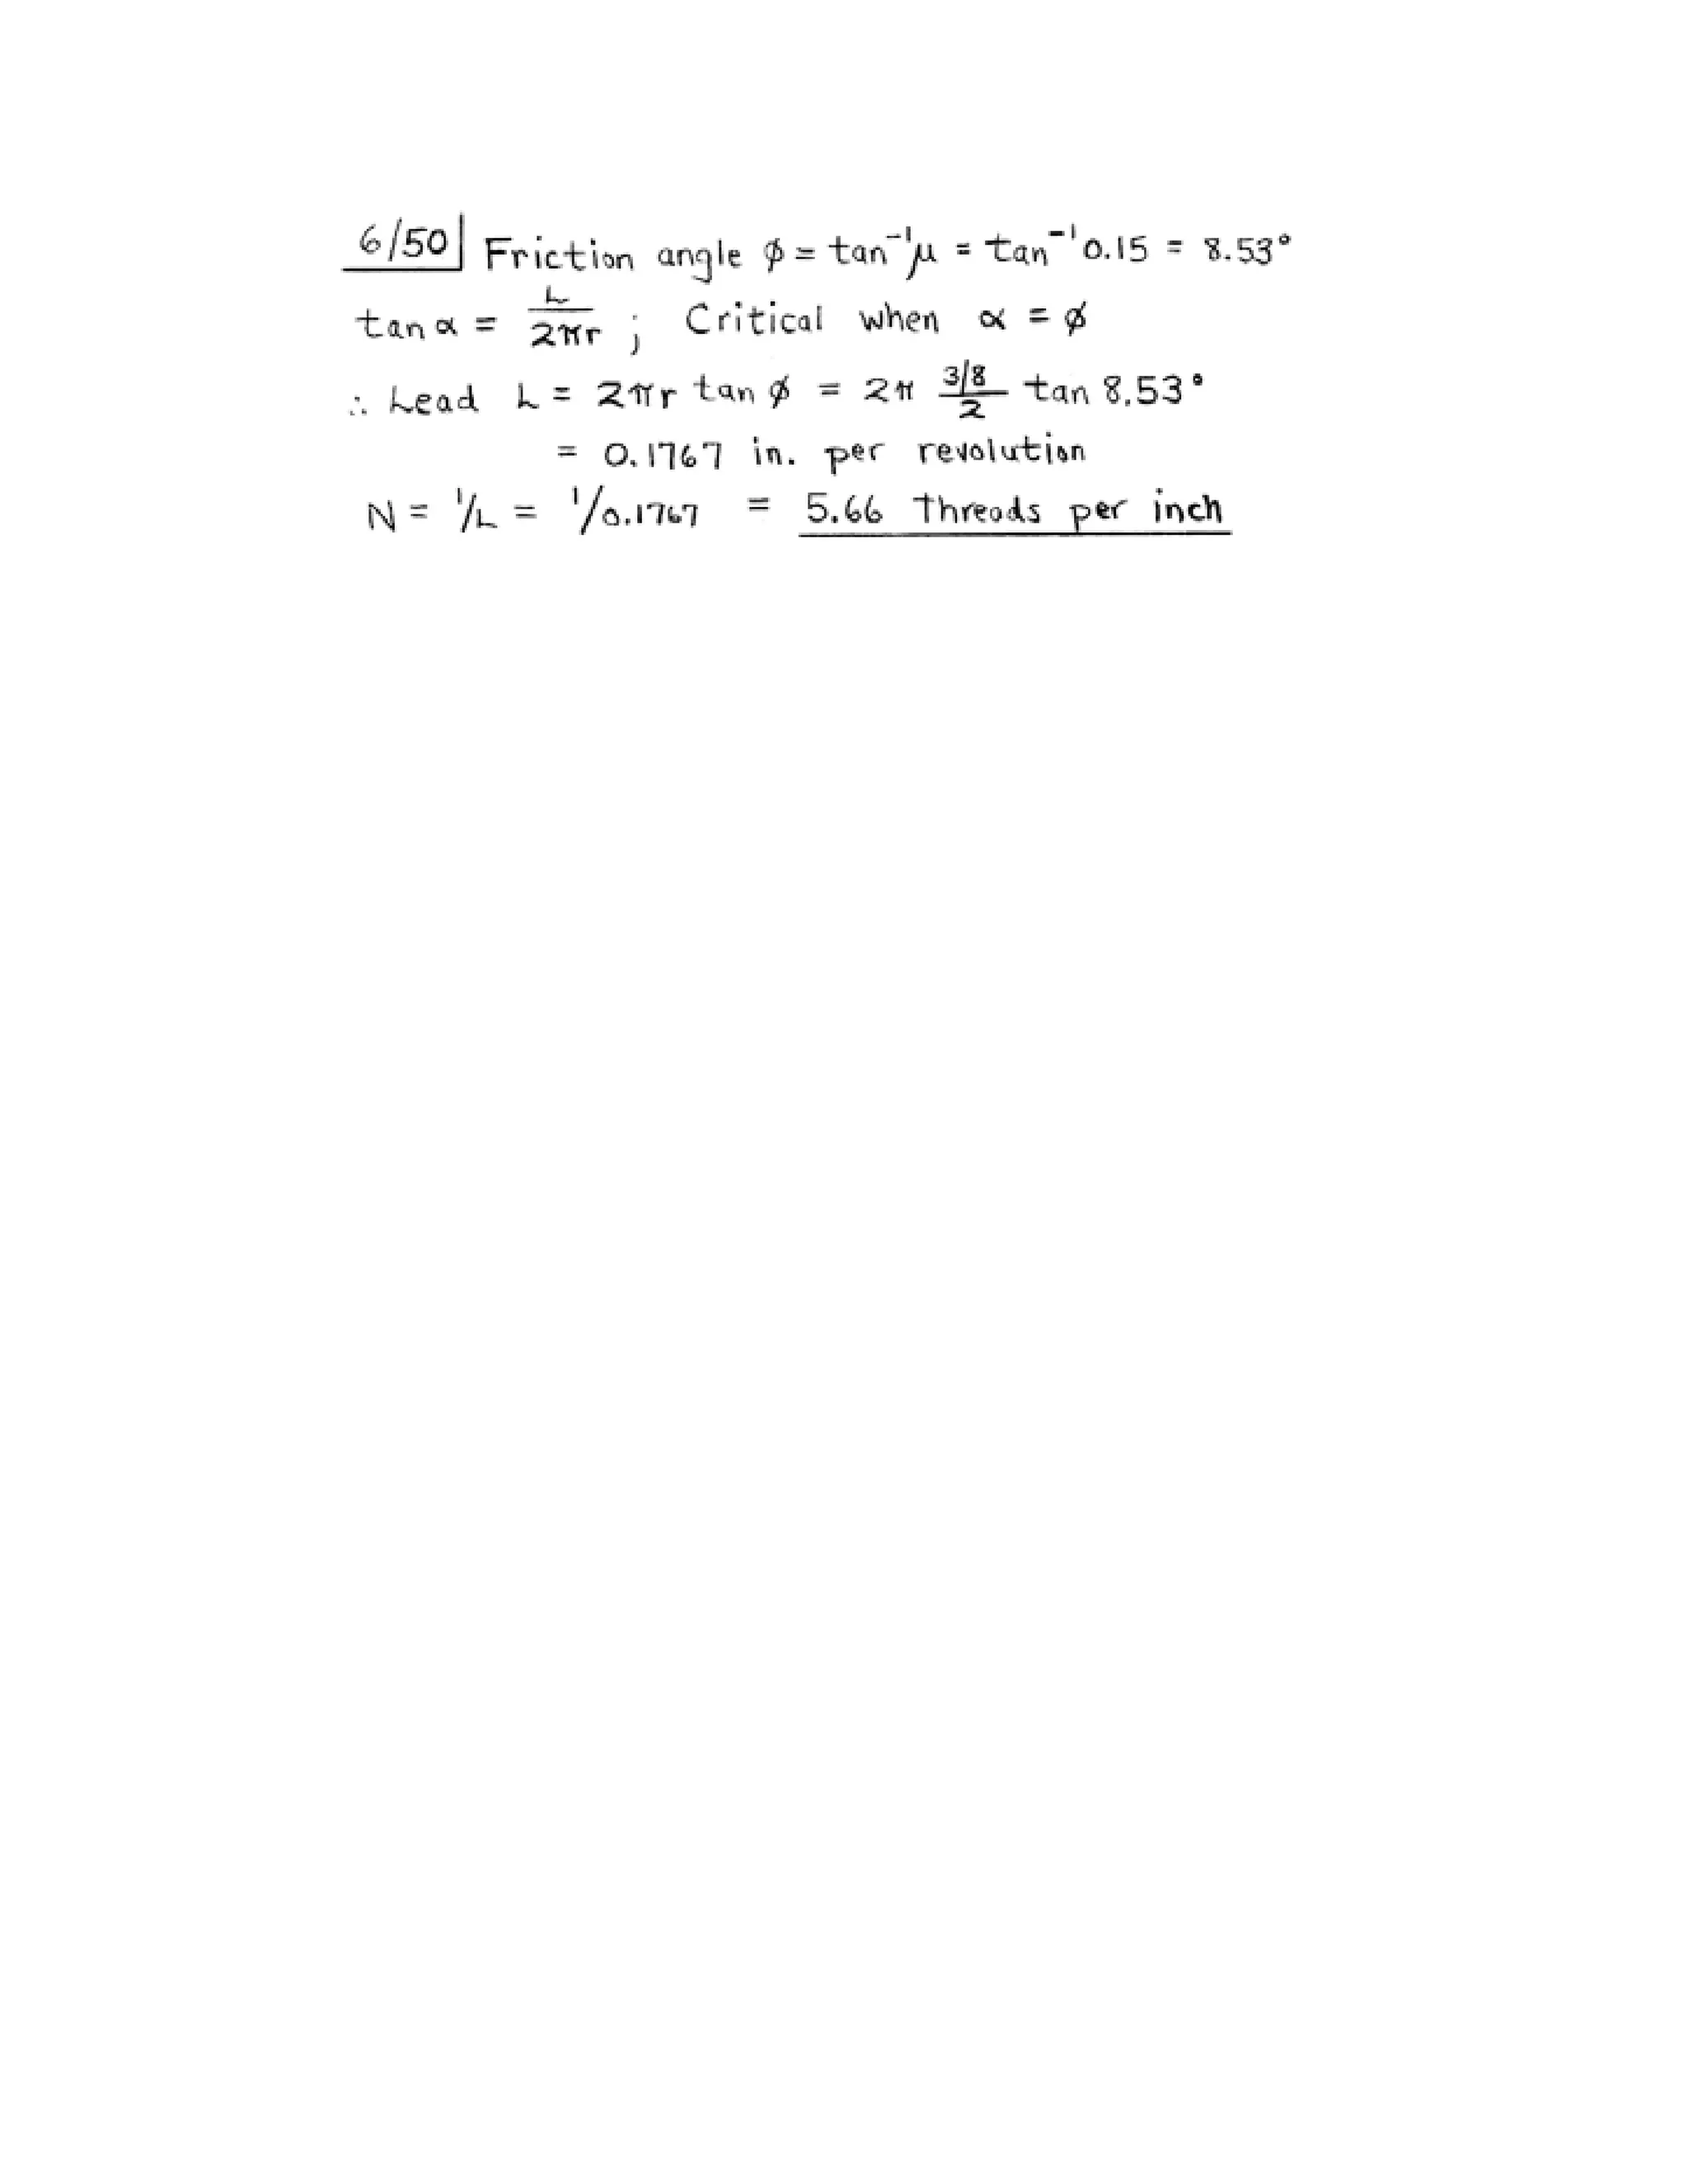 6/50 Friction angle ϕ = tan⁻¹μ = tan⁻¹0.15 = 8.53°
tan α = L/2πr ; Critical when α = ϕ
∴ Lead L = 2πr tan ϕ = 2π (3/8)/2 tan 8.53°
= 0.1767 in. per revolution
N = 1/L = 1/0.1767 = 5.66 threads per inch